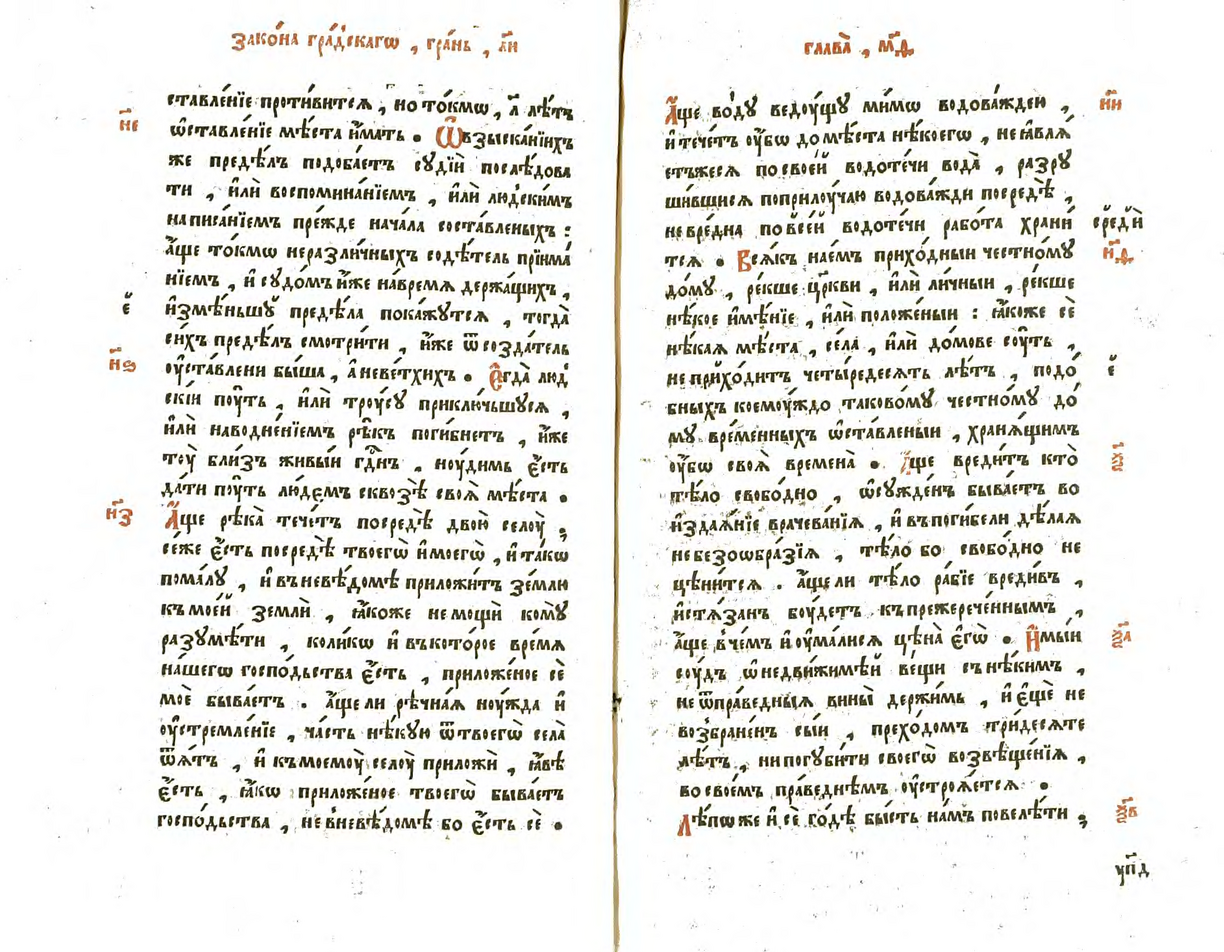 Зако́на гра́дскагѡ , гра́нь , л҃и
ставле́нїе проти́вится , но то́кмѡ , л҃ лѣ́тъ
н҃е
ѡ҆ставле́нїе мѣ́ста и҆́мать . Ѿ взыска́нїихъ
же предѣ́лъ подоба́етъ судїи́ послѣ́дова
ти , и҆лѝ воспомина́нїемъ , и҆лѝ людски́мъ
написа́нїемъ пре́жде нача́ла соста́вленыхъ :
а҆́ще то́кмѡ неразли́чныхъ содѣ́тель прїима́
нїемъ , и҆ судо́мъ и҆́же на́время держа́щихъ ,
и҆змѣ́ньшꙋ предѣ́ла пока́жутся , тогда̀
е҃
си́хъ предѣ́лъ смотри́ти , и҆́же ѿ созда́тель
н҃ѕ
оу҆ста́влени бы́ша , а҆ не ве́тхихъ . Е҆гда̀ люд
скі́и пꙋ́ть , и҆лѝ трꙋ́су приклю́чьшуся ,
и҆лѝ наводне́нїемъ рѣ́къ поги́бнетъ , и҆́же
тоу̀ бли́зъ живы́и гд҃нъ , ноу́димь є҆́сть
да́ти пꙋ́ть лю́демъ сквозѣ̀ своѧ̀ мѣ́ста .
н҃з
А҆́ще рѣка̀ тече́тъ посредѣ̀ двою̀ селоу̀ ,
се́же є҆́сть посредѣ̀ твоегѡ̀ и҆ моегѡ̀ , и҆ та́кѡ
пома́лу , и҆ въ невѣ́домѣ приложи́тъ зе́млю
къ мое́й землѝ , ꙗ҆́коже не мощѝ комꙋ̀
разумѣ́ти , коли́кѡ и҆ въ кото́рое время
на́шего госпо́дьства є҆́сть , приложе́ное сѐ
моѐ быва́етъ . а҆́ще ли рѣ́чная ноу́жда и҆
оу҆стремле́нїе , ча́сть нѣ́кую ѿ твоегѡ̀ села̀
ѿѧ́тъ , и҆ къ моемоу̀ селоу̀ приложѝ , ꙗ҆́вѣ
є҆́сть , ꙗ҆́кѡ приложе́ное твоегѡ̀ быва́етъ
госпо́дьства , не в невѣ́домѣ бо є҆́сть сѐ .
глава̀ , м҃д
А҆́ще во́дꙋ ведоу́щꙋ ми́мѡ водова́ждеи ,
н҃и
и҆ тече́тъ оу҆́бѡ до мѣ́ста нѣ́коегѡ , не ꙗ҆влѧ́
етъжеся по свое́й водоте́чи вода̀ , разрꙋ
ши́вшися поприлоу́чаю водова́жди посредѣ̀ ,
невре́дна по все́й водоте́чи рабо́та хранѝ
среди́
тся . Всѧ́къ нае́мъ приходныи че́стно́мꙋ
н҃ѳ
до́мꙋ , ре́кше цр҃кви , и҆лѝ ли́чныи , ре́кше
нѣ́кое и҆мѣ́нїе , и҆лѝ положе́ныи : ꙗ҆́коже сѐ
нѣ́кая мѣ́ста , се́ла , и҆лѝ до́мове соу́ть ,
не прихо́дитъ четы́редесять лѣ́тъ , подо́
е҃
бныхъ коемоу́ждо таково́мꙋ че́стно́мꙋ до́
мꙋ вре́менныхъ ѡ҆ставле́ныи , хранѧ́щимъ
оу҆́бѡ своѧ̀ времена̀ . А҆́ще вреди́тъ кто̀
ѯ҃
тѣ́ло свобо́дно , ѡ҆су́жде́нъ быва́етъ во
и҆здаѧ́нїе врачева́нїя , и҆ въ поги́бели дѣ́лая
не безѡбра́зїя , тѣ́ло бо свобо́дно не
цѣни́тся . а҆́ще ли тѣ́ло ра́бїе вреди́въ ,
и҆стѧ́занъ боу́детъ къ прежерече́ннымъ ,
а҆́ще в че́мъ и҆ оу҆мали́ся цѣна̀ є҆гѡ̀ . И҆мы́и
ѯ҃а
соу́дъ ѡ҆ недвижимѣ́й ве́щи съ нѣ́кимъ ,
не ѿ пра́ведныя вины̀ держи́мь , и҆ є҆щѐ не
возбране́нъ сы́и , прехо́домъ три́десяте
лѣ́тъ , ни погуби́ти своегѡ̀ возвѣще́нїя ,
во свое́мъ пра́веднѣмъ оу҆строѧ́ется .
Лѣ́пѡ же и҆ сѐ го́дѣ бы́сть на́мъ повелѣ́ти ;
ѯ҃в
уп҃д